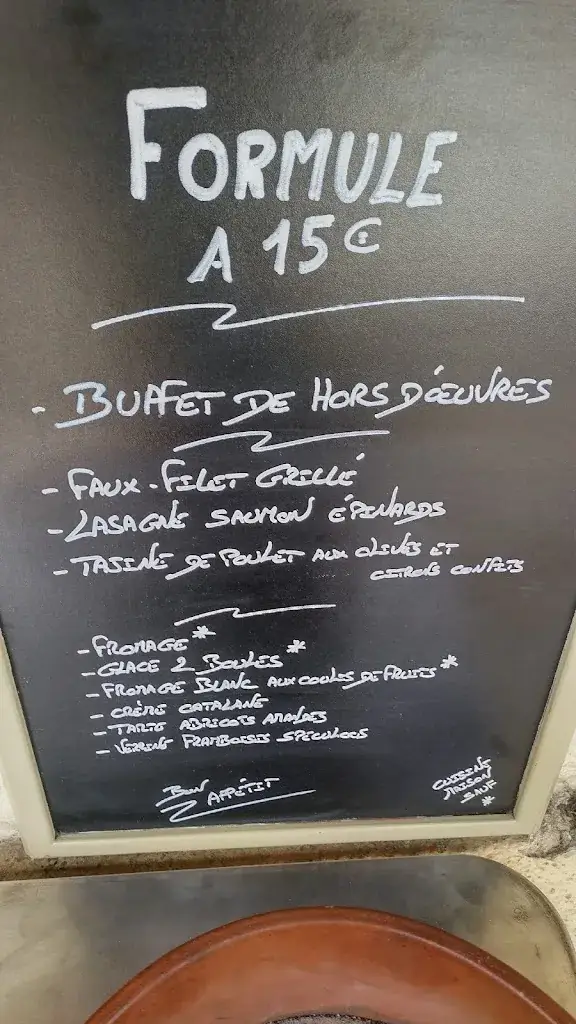 FORMULE
A 15€
- BUFFET DE HORS D'ŒUVRES
- FAUX-FILET GRILLÉ
- LASAGNE SAUMON ÉPINARDS
- TAJINE DE POULET AUX OLIVES ET
CITRONS CONFITS
- FROMAGE*
- GLACE 2 BOULES*
- FROMAGE BLANC AUX COULIS DE FRUITS*
- CRÈME CATALANE
- TARTE ABRICOTS AMANDES
- VERRINE FRAMBOISES SPÉCULOOS
BON
APPÉTIT
CUISINE
MAISON
SAUF
*